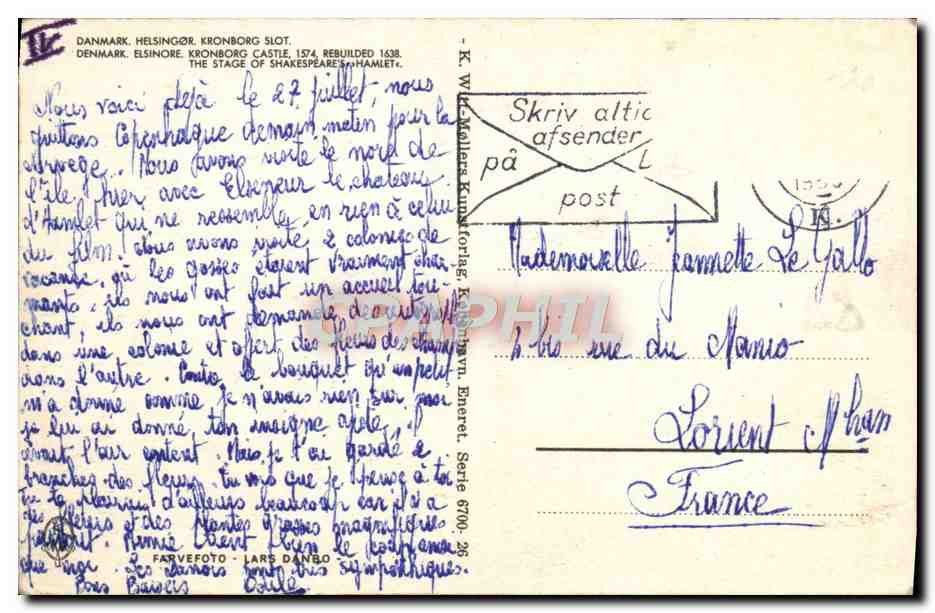 IV
DANMARK. HELSINGØR. KRONBORG SLOT.
DENMARK. ELSINORE. KRONBORG CASTLE, 1574, REBUILDED 1638.
THE STAGE OF SHAKESPEARE'S »HAMLET«.
Nous voici déjà le 27 juillet, nous
quittons Copenhague demain matin pour la
Norvège. Nous avons visité le nord de
l'île hier avec Elseneur le chateau
d'Hamlet qui ne ressemble en rien à celui
du film. Nous avons visité 2 colonies de
vacance, où les gosses étaient vraiment char
mants. ils nous ont fait un accueil tou-
chant, ils nous ont demandé des
dans une colonie et offert des fleurs des champs
dans l'autre. le bouquet qu'un petit
m'a donné comme je n'avais rien sur moi
je lui ai donné ton insigne il
avait l'air content. Mais je t'ai gardé 2
branches des fleurs. Tu vois que je pense à toi
Tu te plairais d'ailleurs beaucoup car il y a
des fleurs et des plantes grasses magnifiques
partout. Mimie tient bien le
que moi. Les Danois sont très sympathiques.
Bons Baisers
FARVEFOTO - LARS DANBO
- K. Witt-Møllers Kunstforlag, København. Eneret. Serie 6700 - 26
Skriv altid
afsender
på
post
Mademoiselle Jeannette Le Gallo
bis rue du Manio
Lorient Mhan
France
CPAPHIL